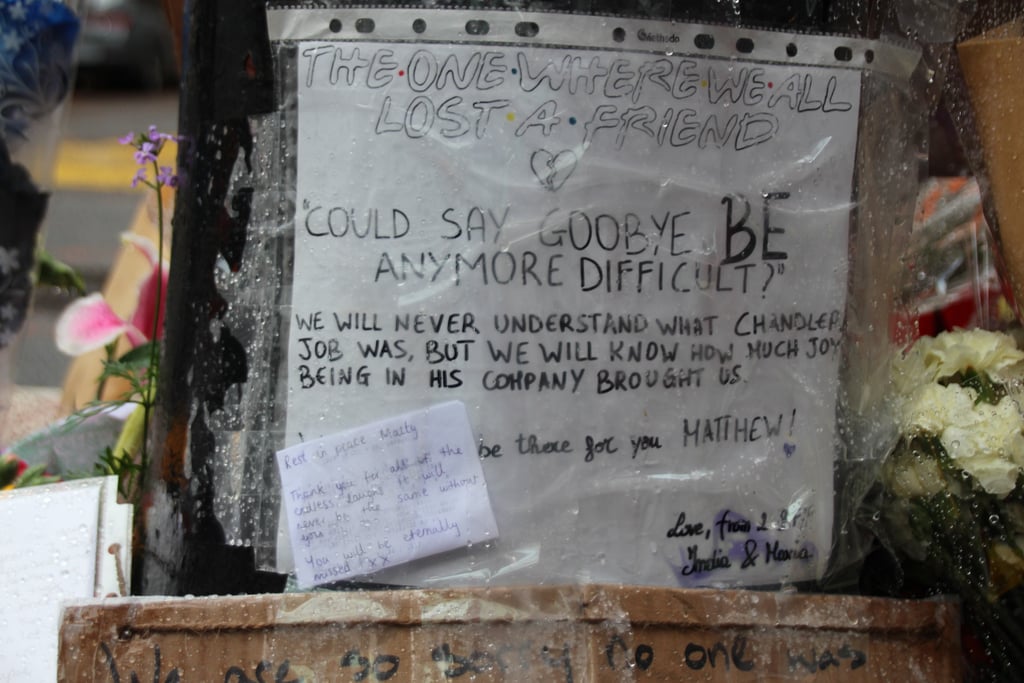 THE·ONE·WHERE·WE·ALL
LOST·A·FRIEND
"COULD SAY GOOBYE BE
ANYMORE DIFFICULT?"
WE WILL NEVER UNDERSTAND WHAT CHANDLER
JOB WAS, BUT WE WILL KNOW HOW MUCH JOY
BEING IN HIS COMPANY BROUGHT US.
be there for you MATTHEW!
Love, from
India &
Rest in peace Matty
Thank you for all of the
endless laughs it will
never be the same without
you
You will be eternally
missed xx
We are so sorry no one was